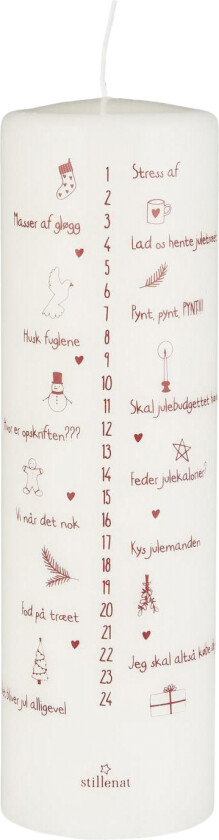 1 Stress af
2
3 Masser af gløgg
4 Lad os hente
5
6
7 Pynt, pynt, PYNT!!!
8 Husk fuglene
9
10
11 Skal julebudgettet
12 er opskriften???
13
14 Feder julekalorier?
15
16 Vi når det nok
17 Kys julemanden
18
19
20 Fod på træet
21
22 Jeg skal altså købe
23
24 bliver jul alligevel
stillenat